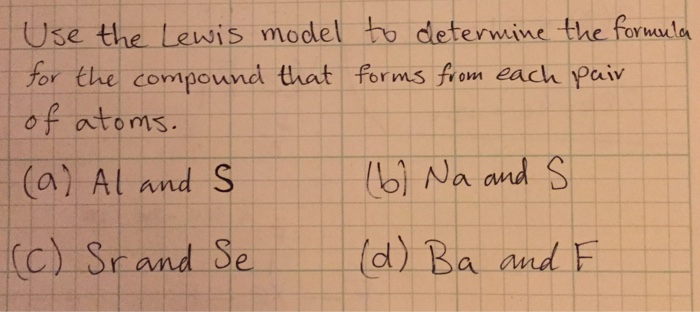 Use the Lewis model to determine the formula
for the compound that forms from each pair
of atoms.
(a) Al and S (b) Na and S
(c) Sr and Se (d) Ba and F